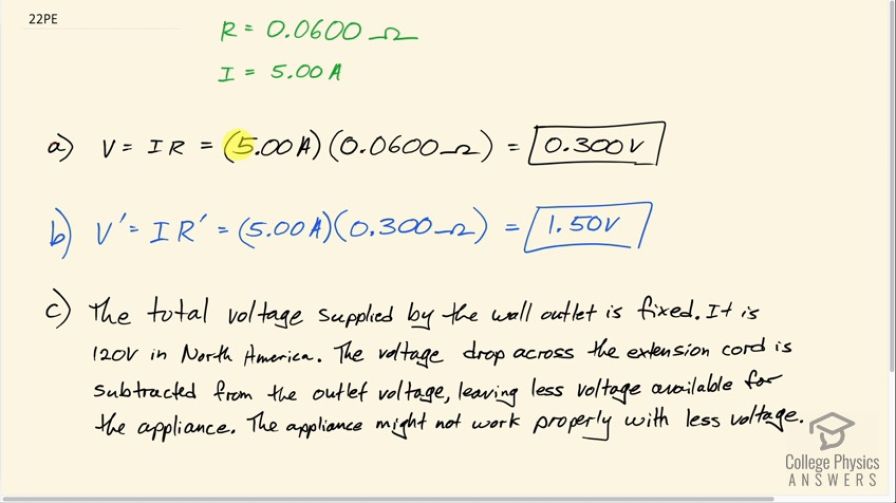 22PE
R = 0.0600 Ω
I = 5.00 A
a) V = I R = (5.00 A)(0.0600 Ω) = 0.300 V
b) V' = I R' = (5.00 A)(0.300 Ω) = 1.50 V
c) The total voltage supplied by the wall outlet is fixed. It is
120V in North America. The voltage drop across the extension cord is
subtracted from the outlet voltage, leaving less voltage available for
the appliance. The appliance might not work properly with less voltage.
College Physics
ANSWERS